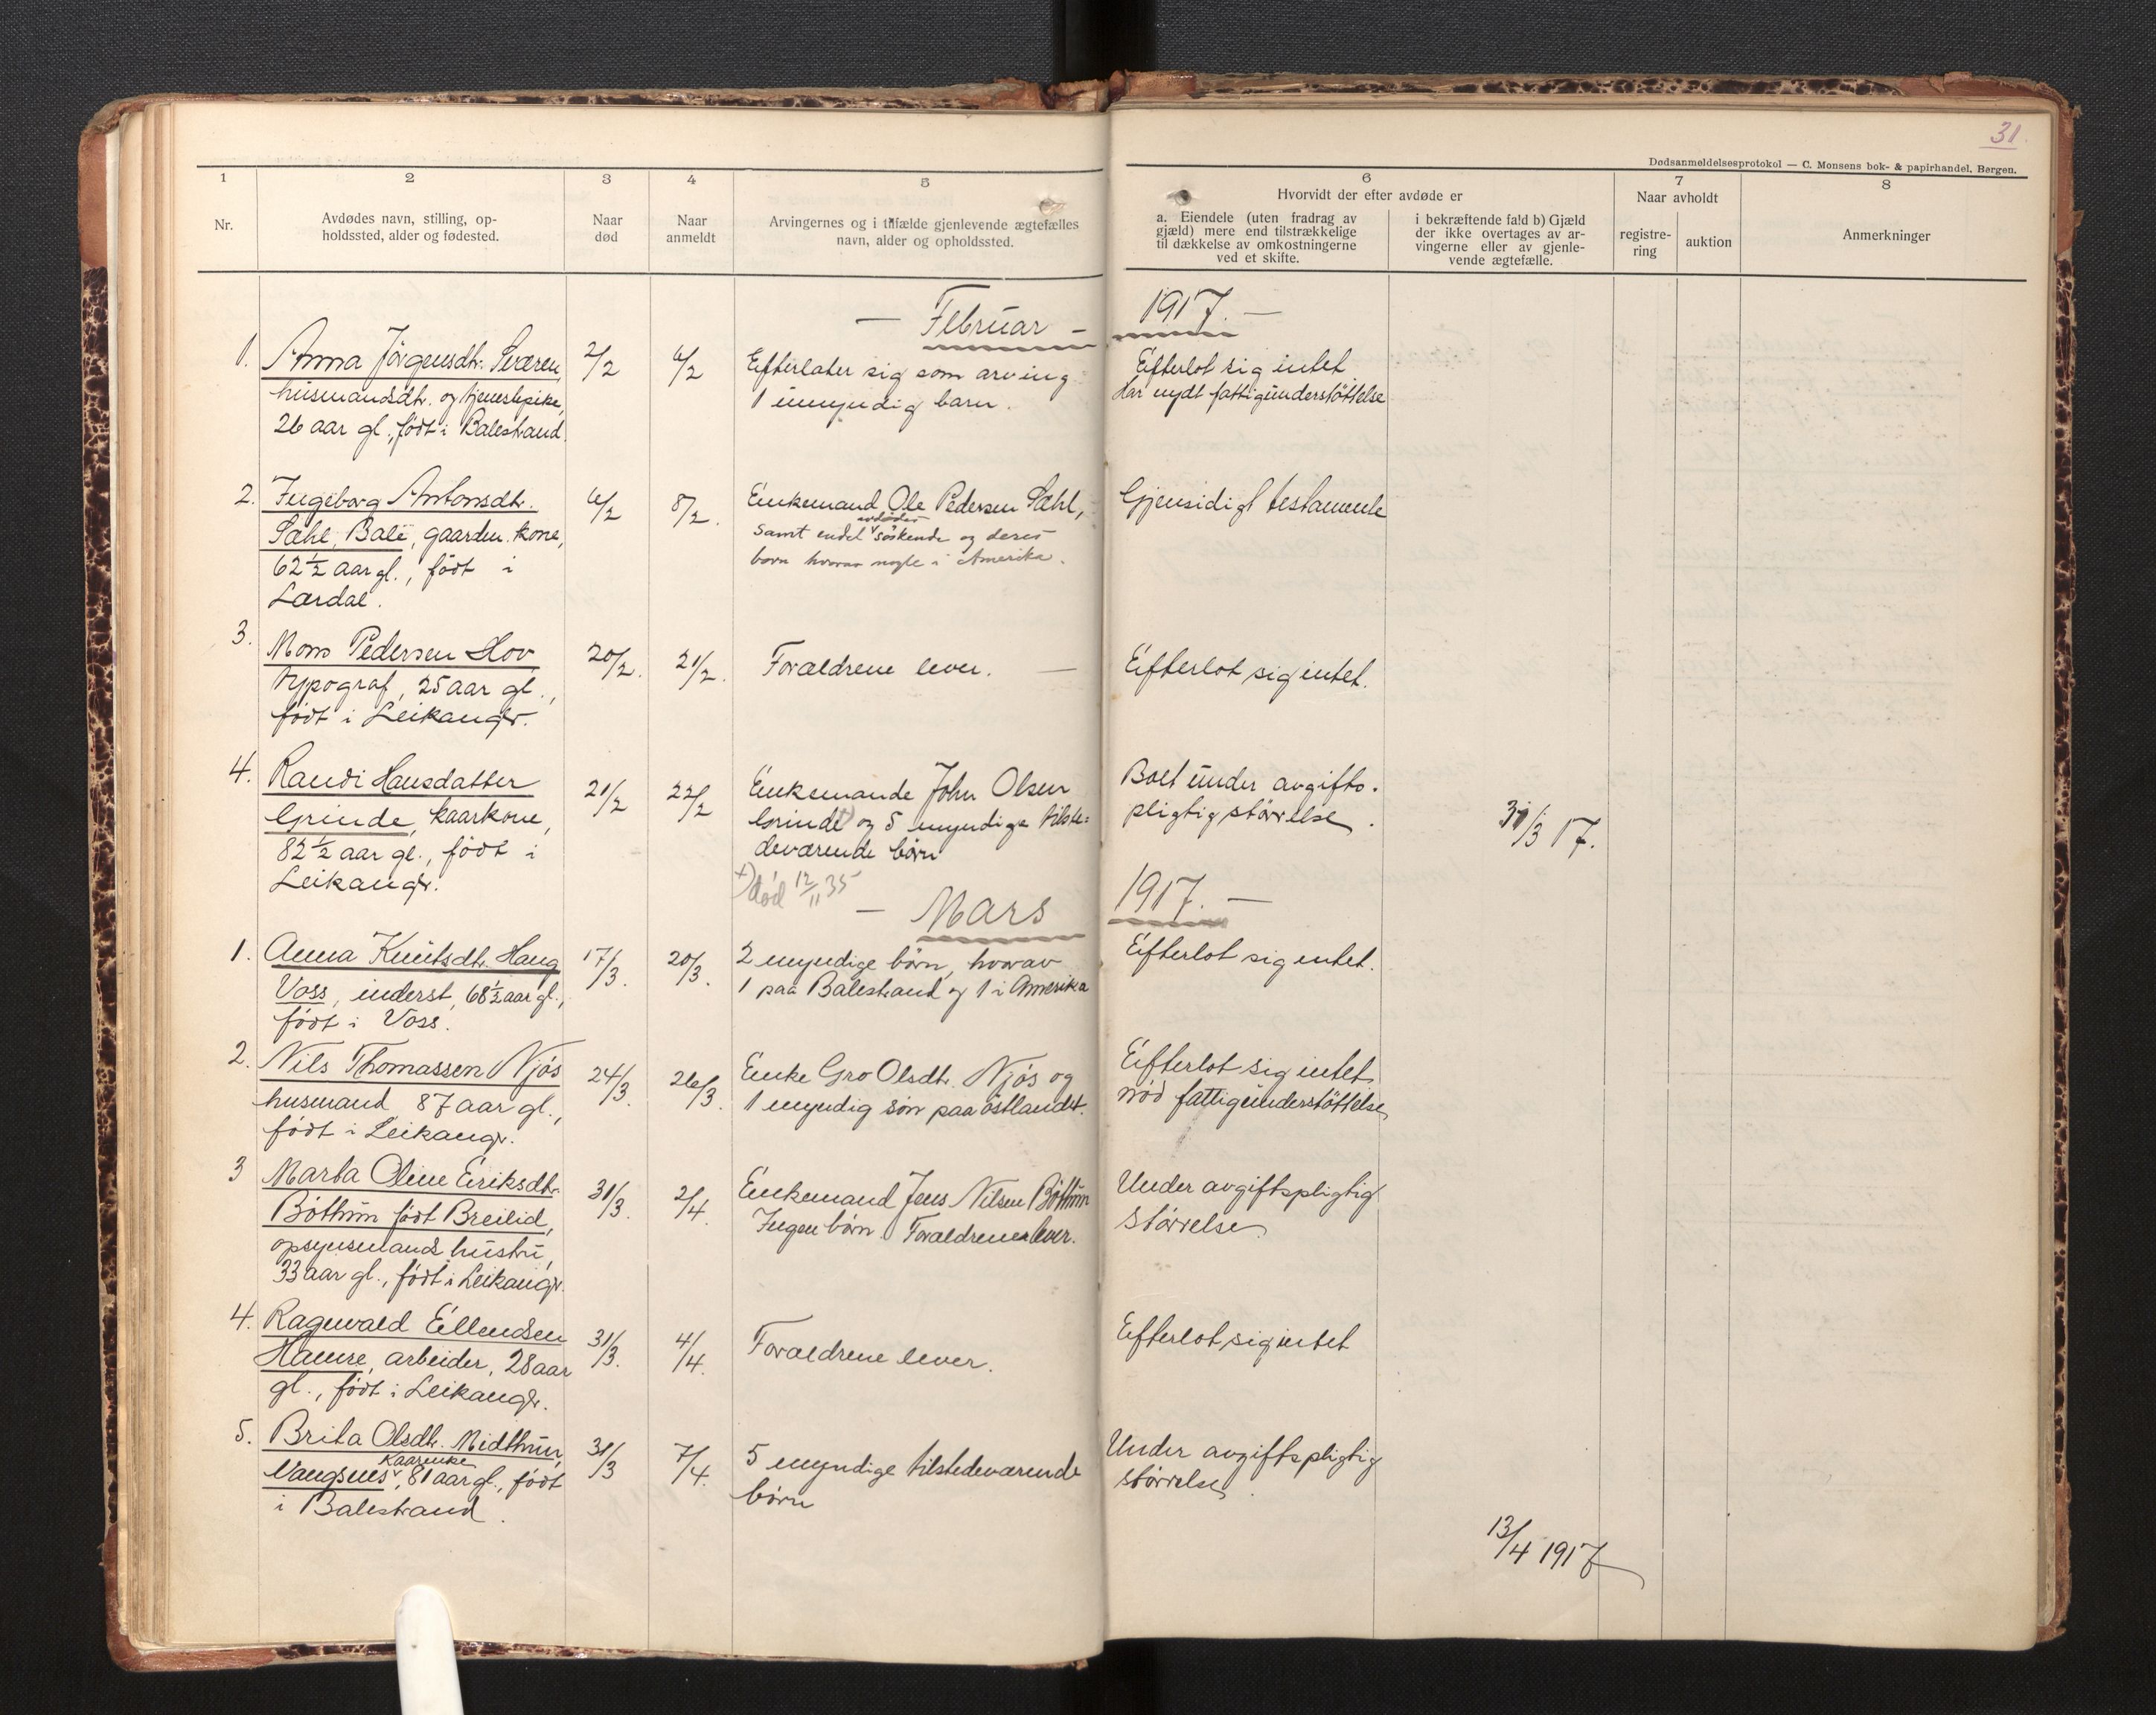 31.
Dødsanmeldelsesprotokol — C. Monsens bok- & papirhandel, Bergen.
1
Nr.
2
Avdødes navn, stilling, op-
holdssted, alder og fødested.
3
Naar
død
4
Naar
anmeldt
5
Arvingernes og i tilfælde gjenlevende ægtefælles
navn, alder og opholdssted.
6
Hvorvidt der efter avdøde er
a. Eiendele (uten fradrag av
gjæld) mere end tilstrækkelige
til dækkelse av omkostningerne
ved et skifte.
i bekræftende fald b) Gjæld
der ikke overtages av ar-
vingerne eller av gjenle-
vende ægtefælle.
7
Naar avholdt
registre-
ring
auktion
8
Anmerkninger
— Februar — 1917. —
1.
Anna Jörgensdtr. Sværen,
husmandsdtr. og tjenestepike,
26 aar gl., födt i Balestrand.
2/2
6/2
Efterlater sig som arving
1 umyndig barn.
Efterlot sig intet
Har nydt fattigunderstöttelse
2.
Ingeborg Antonsdtr.
Sæhl, Bale, gaardm. kone,
62½ aar gl., födt i
Lærdal.
6/2
8/2.
Enkemand Ole Pedersen Sæhl,
samt endel avdødes söskende og deres
børn hvorav nogle i Amerika.
Gjensidigt testamente
3.
Mons Pedersen Hov
typograf, 25 aar gl.,
födt i Leikanger.
20/2.
21/2.
Forældrene lever. —
Efterlot sig intet.
4.
Randi Hansdatter
Grinde, kaarkone,
82½ aar gl., födt i
Leikanger.
21/2
22/2
Enkemande John Olsen
Grinde +) og 5 myndige tilste=
deværende börn
+) död 12/11 35
Boet under avgifts.
pligtig störrelse.
31/3 17.
— Mars 1917. —
1.
Anna Knutsdtr. Haug
Voss, inderst, 68½ aar gl.,
födt i Voss.
17/3.
20/3.
2 myndige börn, hvorav
1 paa Balestrand og 1 i Amerika
Efterlot sig intet.
2.
Nils Thomassen Njös
husmand 87 aar gl.,
födt i Leikanger.
24/3.
26/3.
Enke Gro Olsdtr. Njös og
1 myndig sön paa östlandet.
Efterlot sig intet
nöd fattigunderstöttelse
3
Marta Oline Eriksdtr.
Böthun födt Breilid,
opsynsmands hustru,
33 aar gl., födt i Leikanger.
31/3.
2/4.
Enkemand Jens Nilsen Böthun
Ingen börn. Forældrene lever.
Under avgiftspligtig
störrelse.
4.
Ragnvald Ellendsen
Hamre, arbeider, 28 aar
gl., födt i Leikanger.
31/3.
4/4.
Forældrene lever.
Efterlot sig intet
5.
Brita Olsdtr. Midthun,
Vangsnes, Kaarenke 81 aar gl., födt
i Balestrand.
31/3
7/4.
5 myndige tilstedeværende
börn
Under avgiftspligtig
störrelse.
13/4 1917